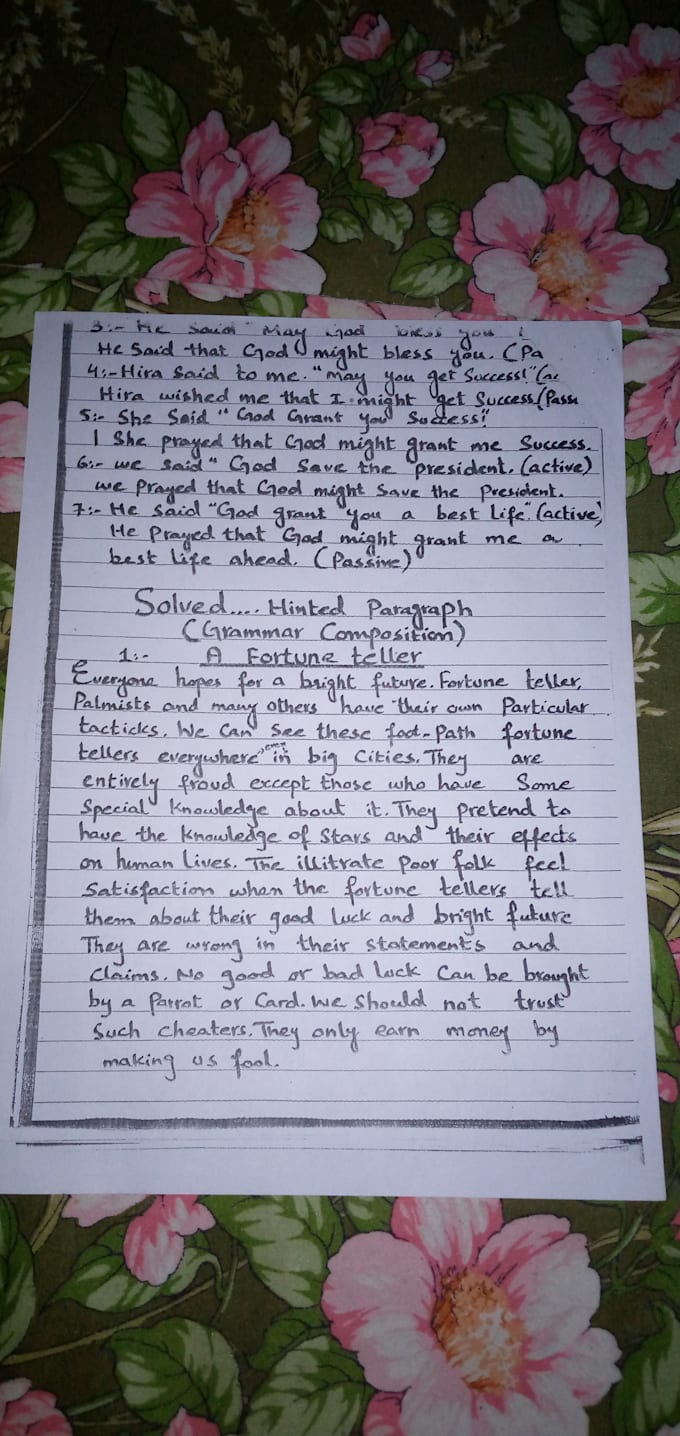 3:- He said "May God bless you !
He Said that God might bless you. (Pa
4:- Hira Said to me. "may you get Success!" (ac
Hira wished me that I might get Success (Passi
5:- She Said " God Grant you Success!"
1 She prayed that God might grant me Success.
6:- we said " God Save the president. (active)
we Prayed that God might Save the President.
7:- He Said "God grant you a best Life". (active)
He Prayed that God might grant me a
best Life ahead. (Passive)
Solved.... Hinted Paragraph
(Grammar Composition)
1:- A Fortune teller
Everyone hopes for a bright future. Fortune teller,
Palmists and many others have their own Particular
tacticks. We Can See these foot-Path fortune
tellers everywhere in big Cities. They are
entirely froud except those who have Some
Special Knowledge about it. They pretend to
have the Knowledge of Stars and their effects
on human Lives. The illitrate Poor folk feel
Satisfaction when the fortune tellers tell
them about their good luck and bright future
They are wrong in their statements and
Claims. No good or bad luck Can be brought
by a Parrot or Card. We Should not trust
Such cheaters. They only earn money by
making us fool.